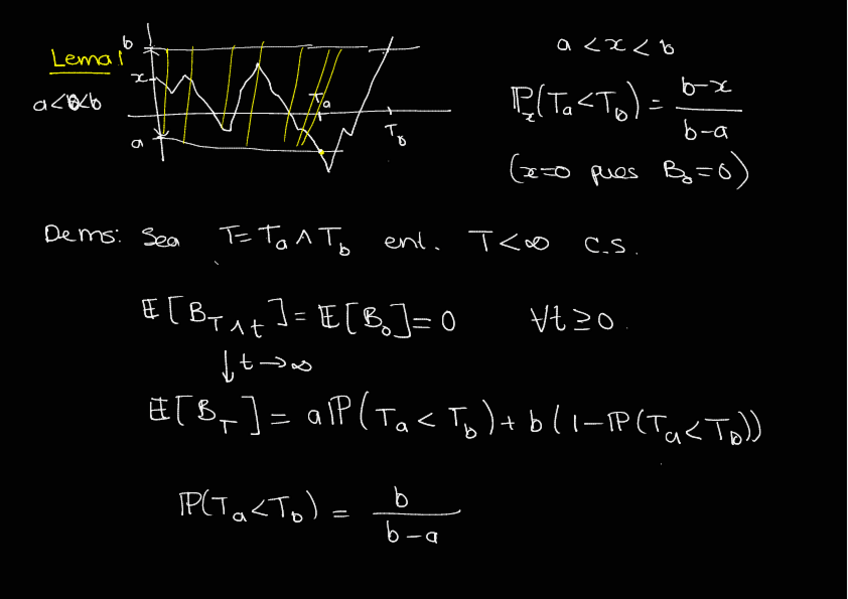 Lema 1
a<0<b
b
x
a
T_a
T_b
a < x < b
ℙ_x(T_a < T_b) = \frac{b-x}{b-a}
(x=0 pues B_0=0)
Dems: Sea T = T_a ∧ T_b ent. T < ∞ c.s.
𝔼[B_{T∧t}] = 𝔼[B_0] = 0 ∀t ≥ 0.
↓ t → ∞
𝔼[B_T] = aℙ(T_a < T_b) + b(1-ℙ(T_a < T_b))
ℙ(T_a < T_b) = \frac{b}{b-a}